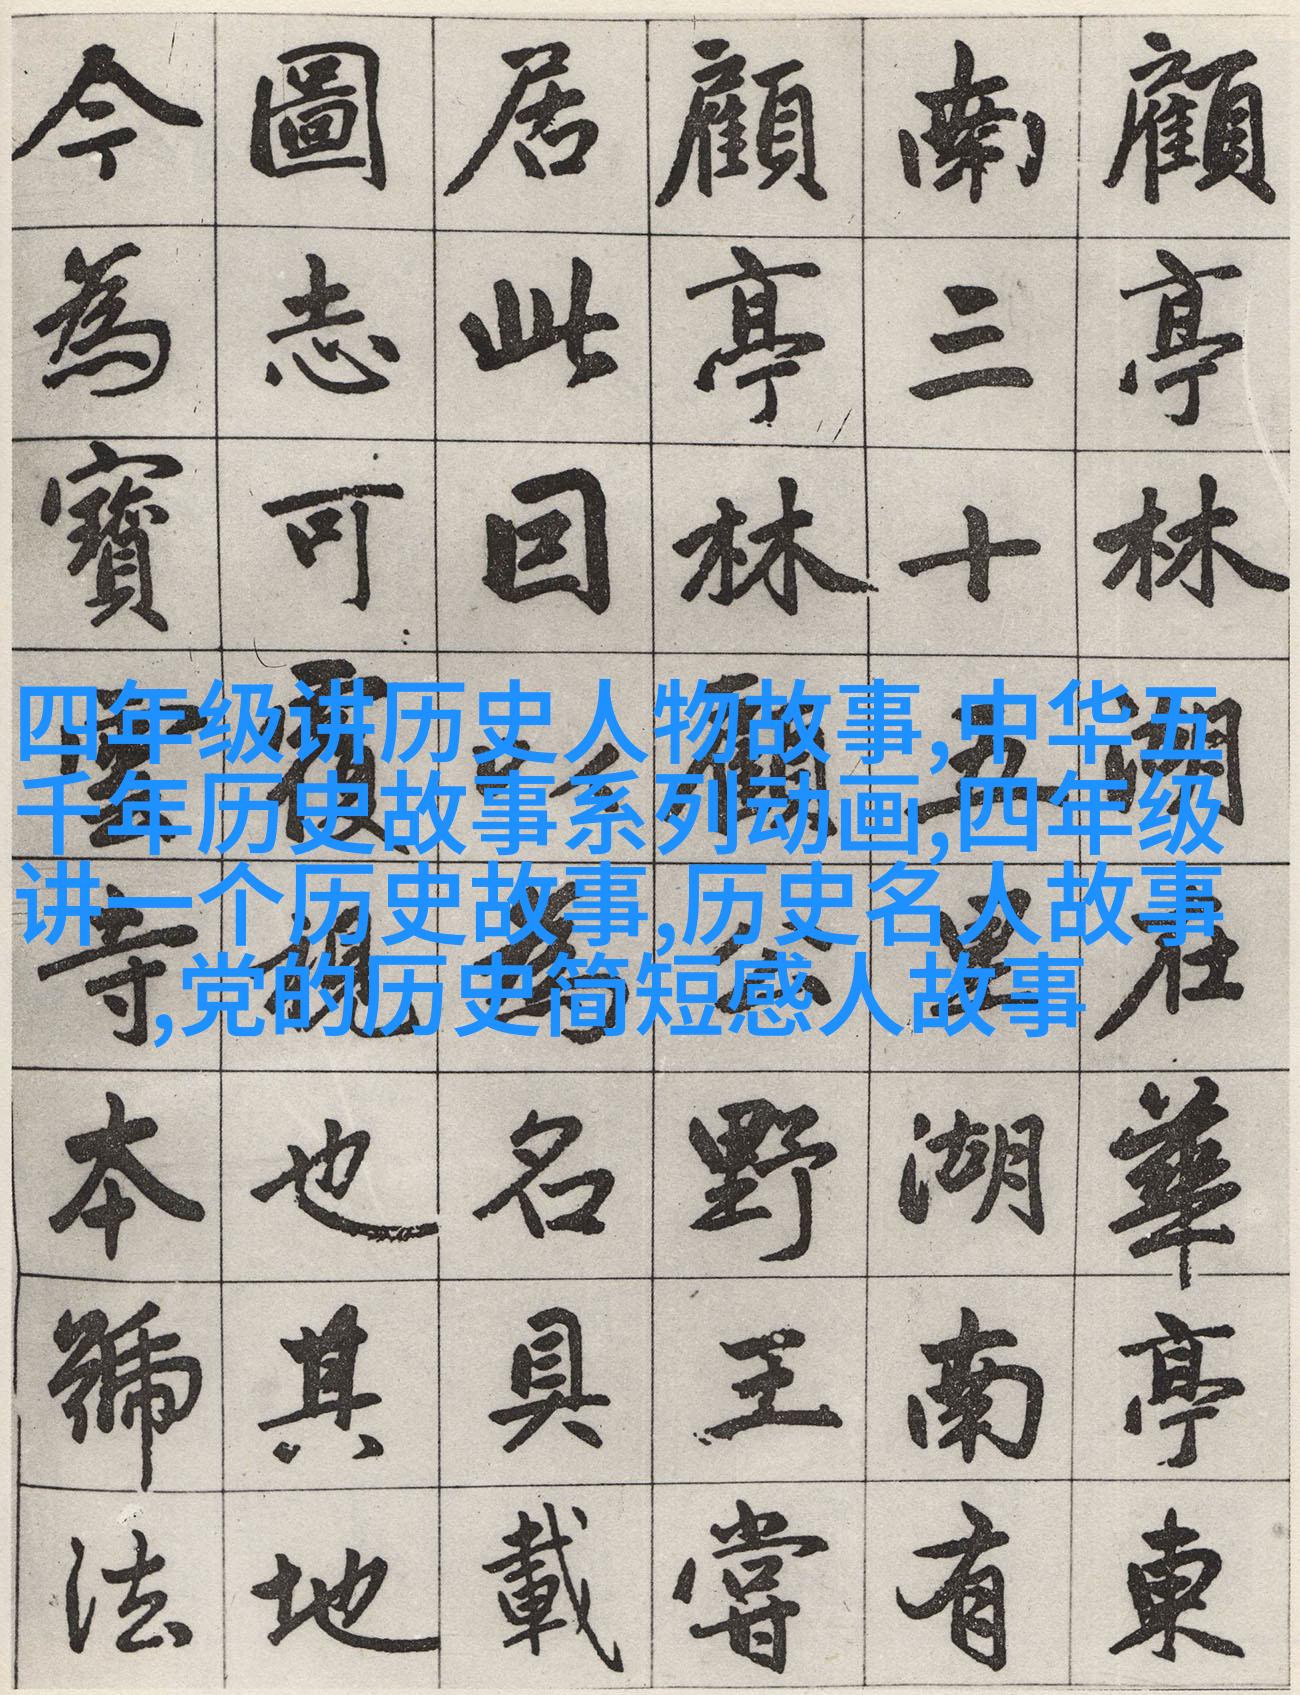 顧亭林湖在華亭東
南三十五里湖南有
顧亭林顧公野王嘗
居此囙以為名具載
圖志可覆視也其地
今為寶雲寺本號法
四年级讲历史人物故事,中华五
千年历史故事系列动画,四年级
讲一个历史故事,历史名人故事
,党的历史简短感人故事